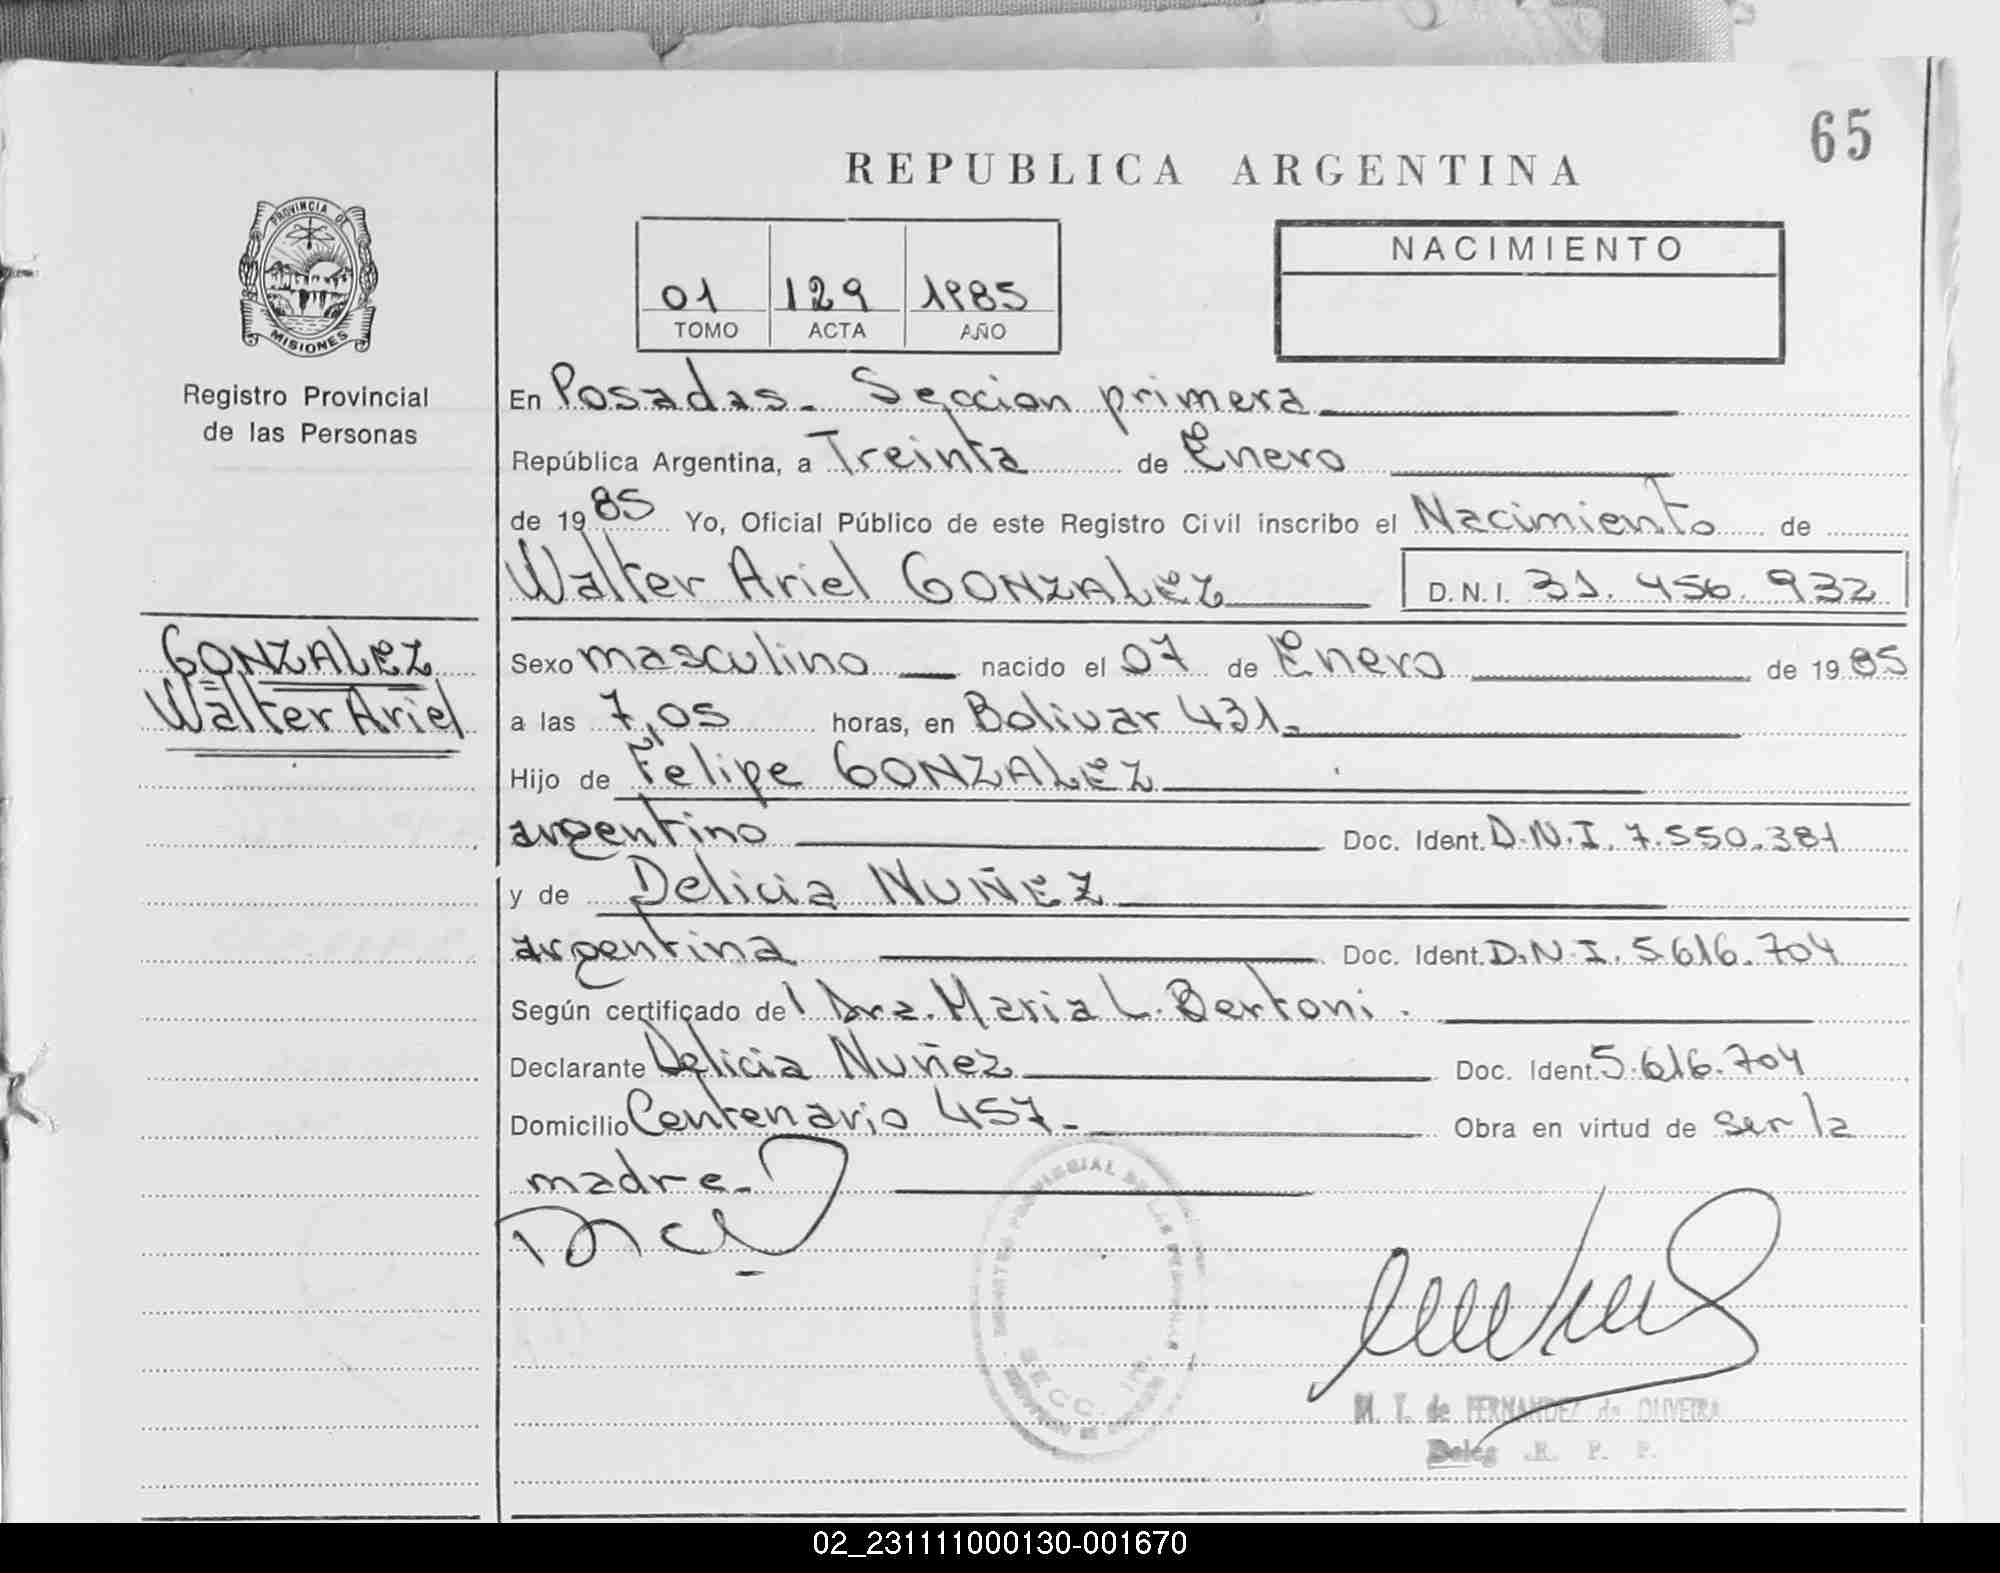 65
REPUBLICA ARGENTINA
PROVINCIA DE
MISIONES
Registro Provincial
de las Personas
01 129 1985
TOMO ACTA AÑO
NACIMIENTO
En Posadas - Seccion primera
República Argentina, a Treinta de Enero
de 1985 Yo, Oficial Público de este Registro Civil inscribo el Nacimiento de
Walter Ariel GONZALEZ D.N.I. 31.456.932
GONZALEZ
Walter Ariel
Sexo masculino nacido el 07 de Enero de 1985
a las 7,05 horas, en Bolivar 431.
Hijo de Felipe GONZALEZ
argentino Doc. Ident. D.N.I. 7.550.381
y de Delicia NUÑEZ
argentina Doc. Ident. D.N.I. 5.616.704
Según certificado de Dra. Maria L. Bertoni.
Declarante Delicia Nuñez Doc. Ident. 5.616.704
Domicilio Centenario 457- Obra en virtud de ser la
madre-
SECC. 1ra.
M. T. de FERNANDEZ de OLIVEIRA
Deleg. R. P. P.
02_231111000130-001670